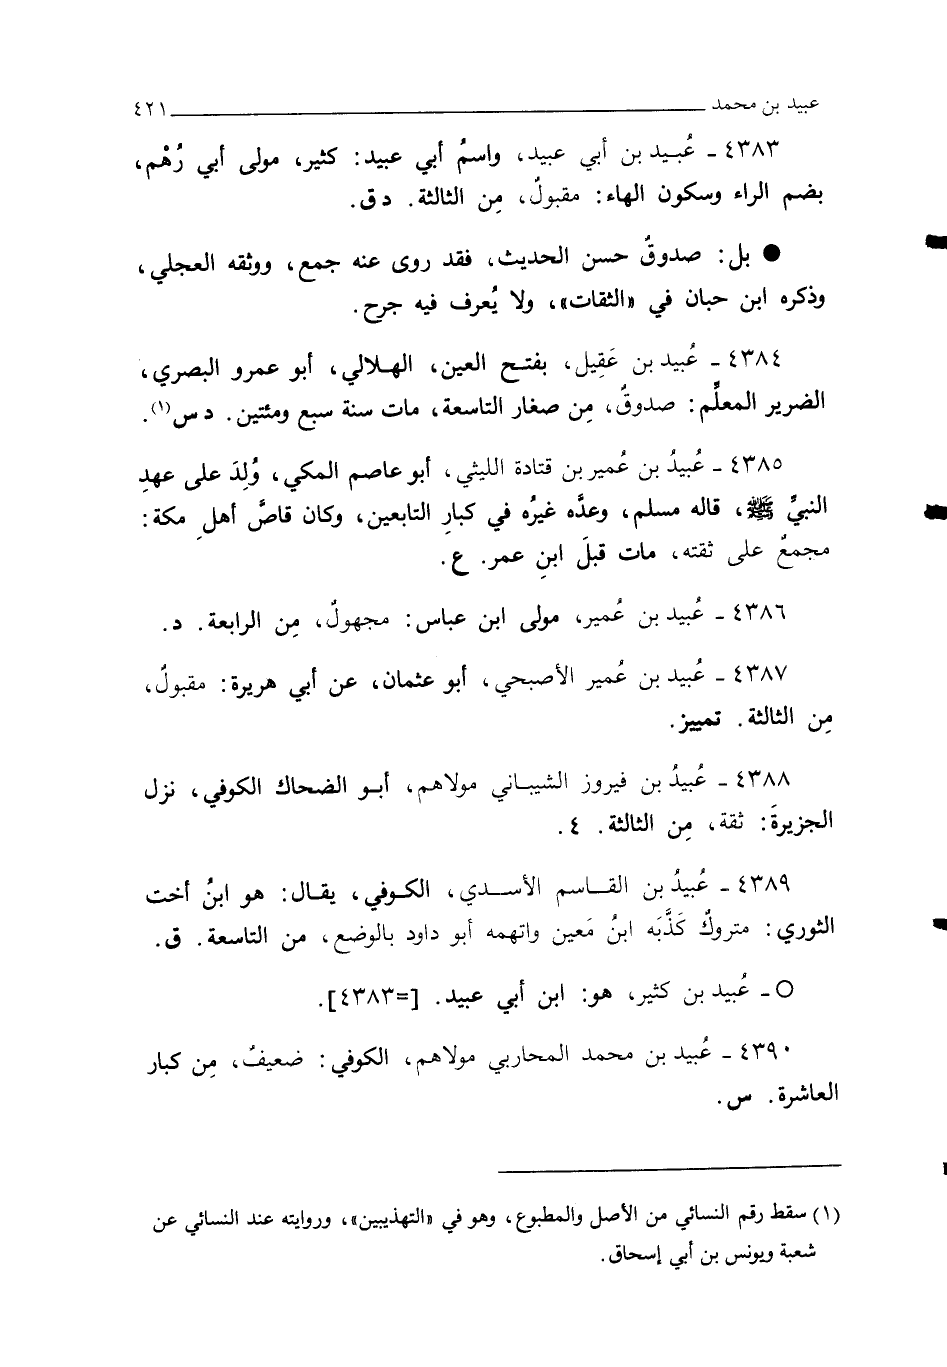 عبيد بن محمد ٤٢١
٤٣٨٣ ـ عُبيد بن أبي عبيد، واسمُ أبي عبيد: كثير، مولى أبي رُهْم،
بضم الراء وسكون الهاء: مقبولٌ، مِن الثالثة. د ق.
● بل: صدوقٌ حسن الحديث، فقد روى عنه جمع، ووثقه العجلي،
وذكره ابن حبان في «الثقات»، ولا يُعرف فيه جرح.
٤٣٨٤ ـ عُبيد بن عَقِيل، بفتح العين، الهلالي، أبو عمرو البصري،
الضرير المعلِّم: صدوقٌ، مِن صغار التاسعة، مات سنة سبع ومئتين. د س(١).
٤٣٨٥ ـ عُبيدُ بن عُمير بن قتادة الليثي، أبو عاصم المكي، وُلِدَ على عهدِ
النبيِّ ﷺ، قاله مسلم، وعدَّه غيرُه في كبارِ التابعين، وكان قاصَّ أهلِ مكة:
مجمعٌ على ثقته، مات قبلَ ابنِ عمر. ع.
٤٣٨٦ ـ عُبيد بن عُمير، مولى ابن عباس: مجهولٌ، مِن الرابعة. د.
٤٣٨٧ ـ عُبيد بن عُمير الأصبحي، أبو عثمان، عن أبي هريرة: مقبولٌ،
مِن الثالثة. تمييز.
٤٣٨٨ ـ عُبيدُ بن فيروز الشيباني مولاهم، أبو الضحاك الكوفي، نزل
الجزيرةَ: ثقة، مِن الثالثة. ٤.
٤٣٨٩ ـ عُبيدُ بن القاسم الأسدي، الكوفي، يقال: هو ابنُ أخت
الثوري: متروكٌ كَذَّبَه ابنُ مَعين واتهمه أبو داود بالوضع، من التاسعة. ق.
○ ـ عُبيد بن كثير، هو: ابن أبي عبيد. [=٤٣٨٣].
٤٣٩٠ ـ عُبيد بن محمد المحاربي مولاهم، الكوفي: ضعيفٌ، مِن كبار
العاشرة. س.
(١) سقط رقم النسائي من الأصل والمطبوع، وهو في «التهذيبين»، وروايته عند النسائي عن
شعبة ويونس بن أبي إسحاق.